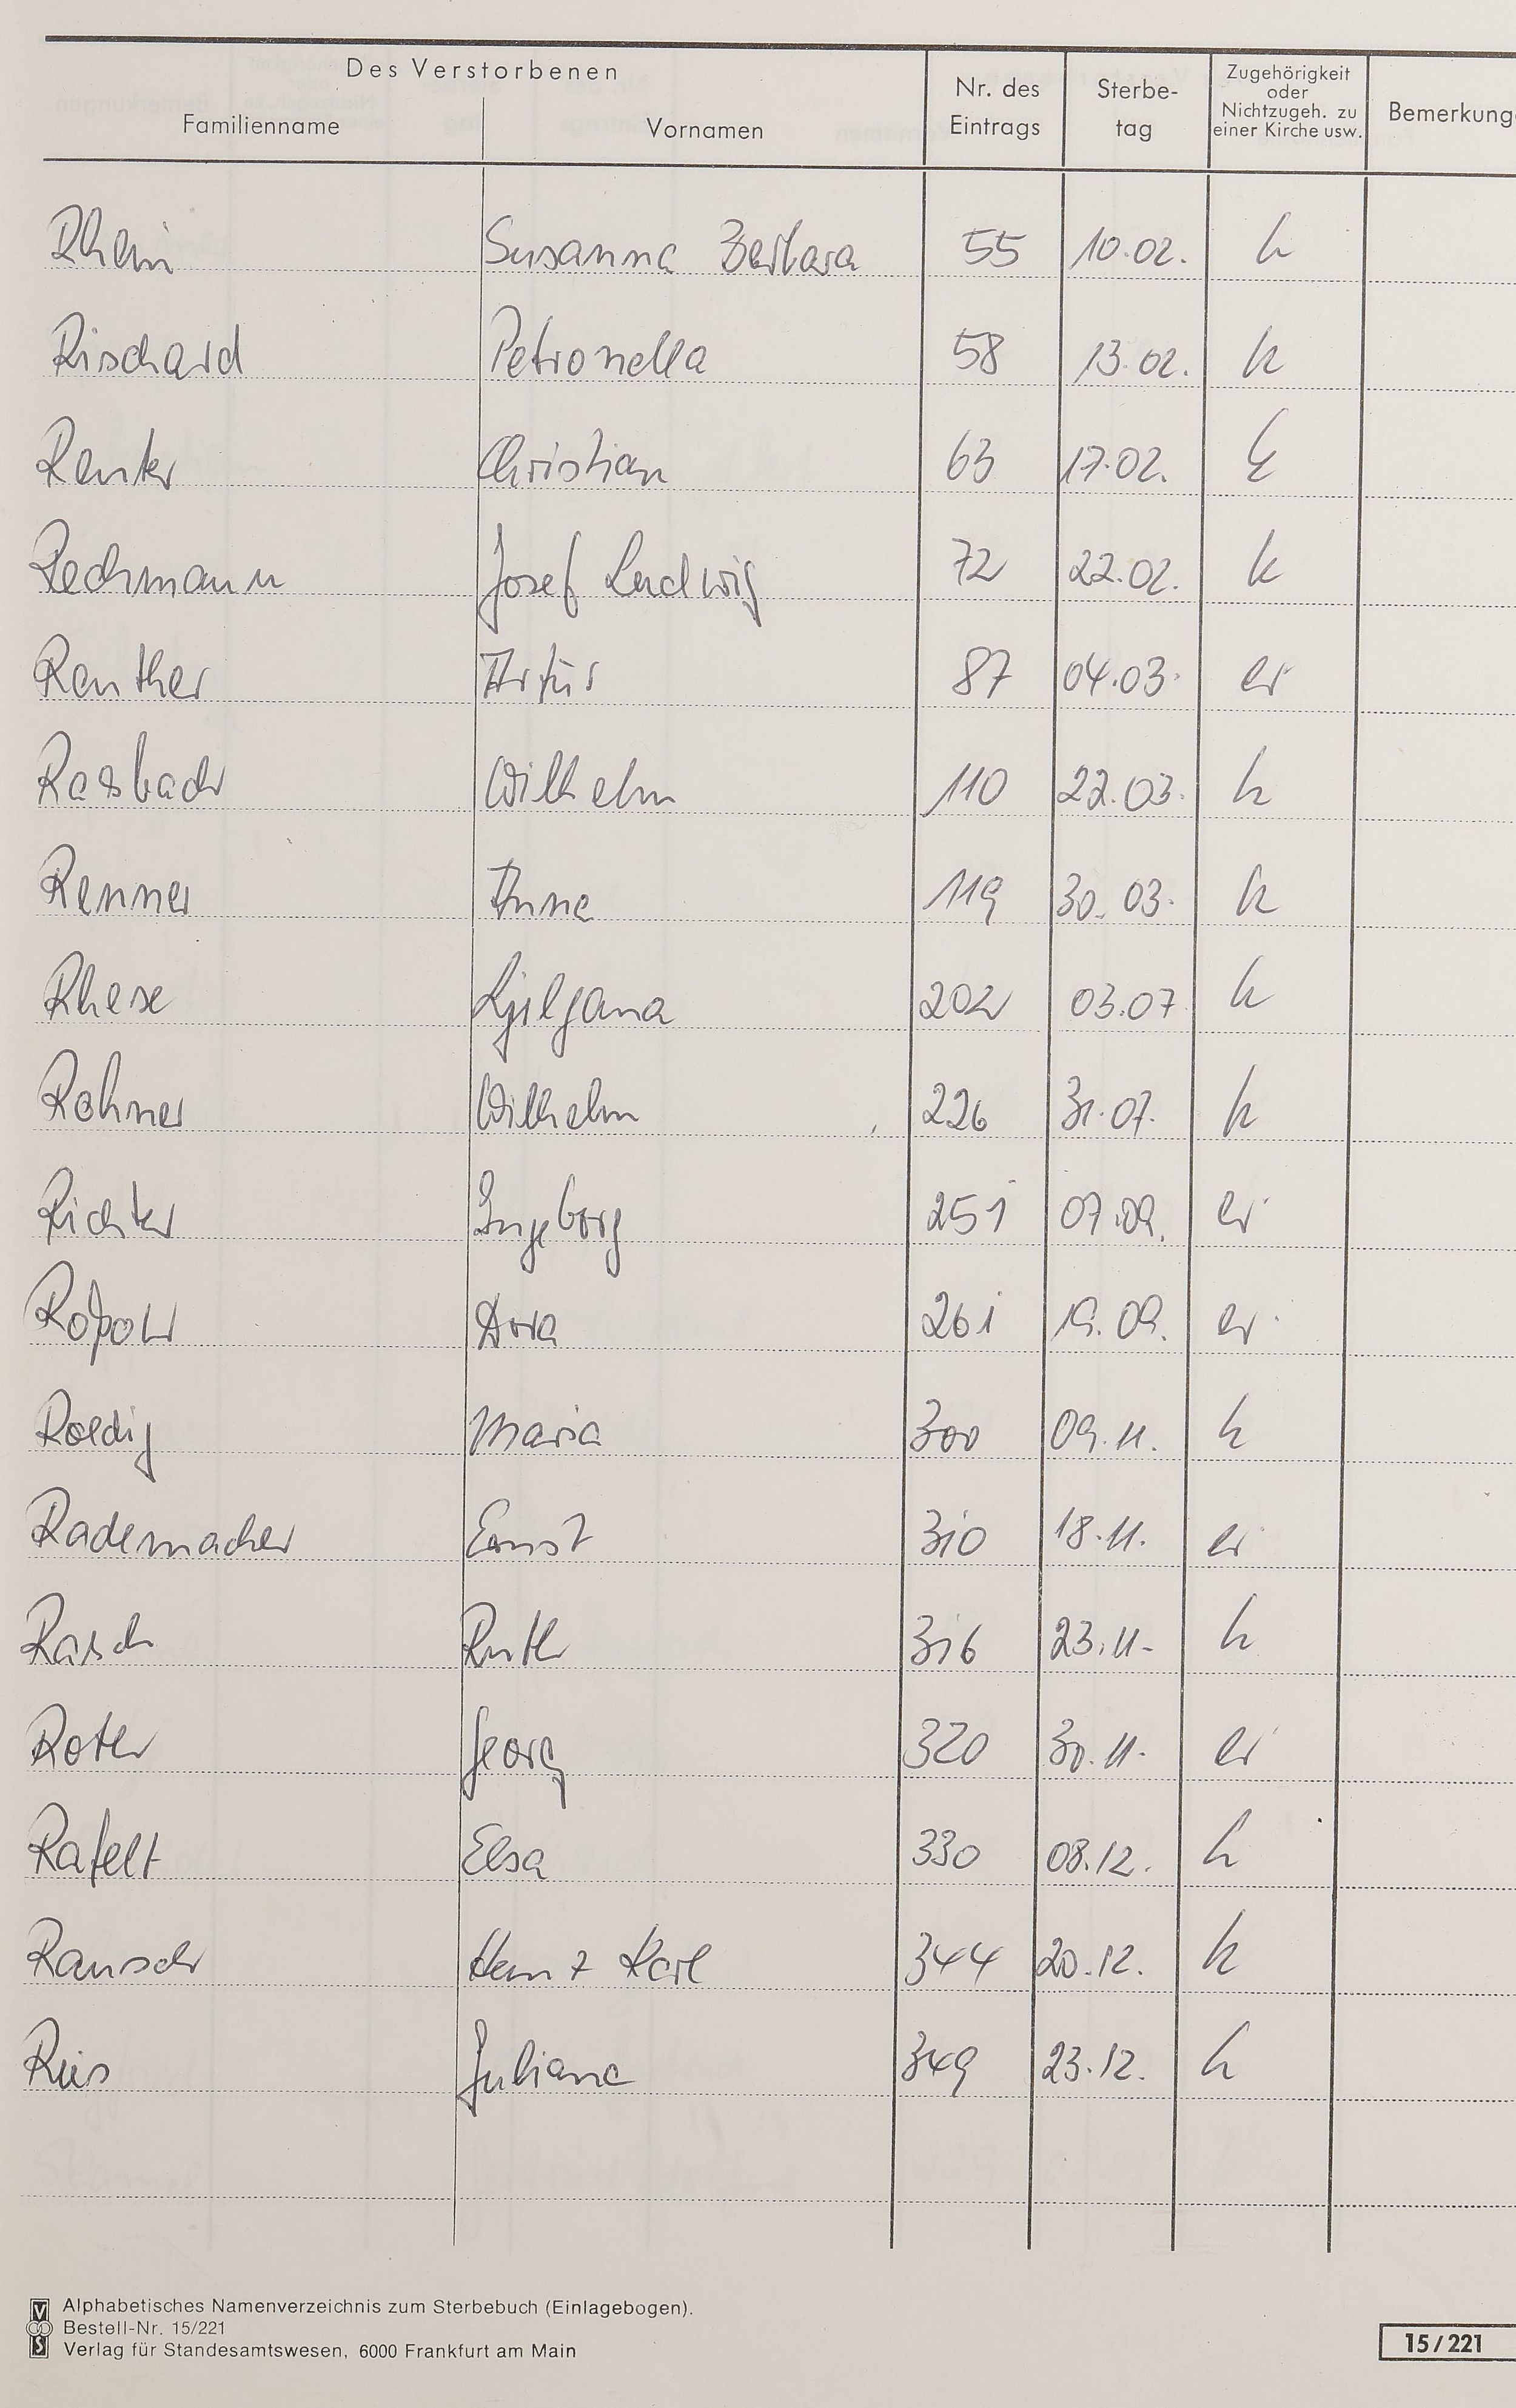 Des Verstorbenen
Familienname Vornamen Nr. des Eintrags Sterbe-tag Zugehörigkeit oder Nichtzugeh. zu einer Kirche usw. Bemerkung
Rhein Susanna Barbara 55 10.02. k
Rischard Petronella 58 13.02. k
Renter Christian 63 17.02. k
Rechmann Josef Ludwig 72 22.02. k
Renther Artur 87 04.03. er
Rasbach Wilhelm 110 22.03. k
Renner Anna 119 30.03. k
Rhese 202 03.07 k
Rohner Wilhelm 226 31.07. k
Richter Ingeborg 251 07.09. er
Dora 261 19.09. er
Roedig Maria 300 09.11. k
Rademacher Ernst 310 18.11. er
Rasch Ruth 316 23.11. k
Roter Georg 320 30.11. er
Rafelt Elsa 330 08.12. k
Rausch Heinz Karl 344 20.12. k
Ries Juliana 349 23.12. k
Alphabetisches Namenverzeichnis zum Sterbebuch (Einlagebogen).
Bestell-Nr. 15/221
Verlag für Standesamtswesen, 6000 Frankfurt am Main
15/221